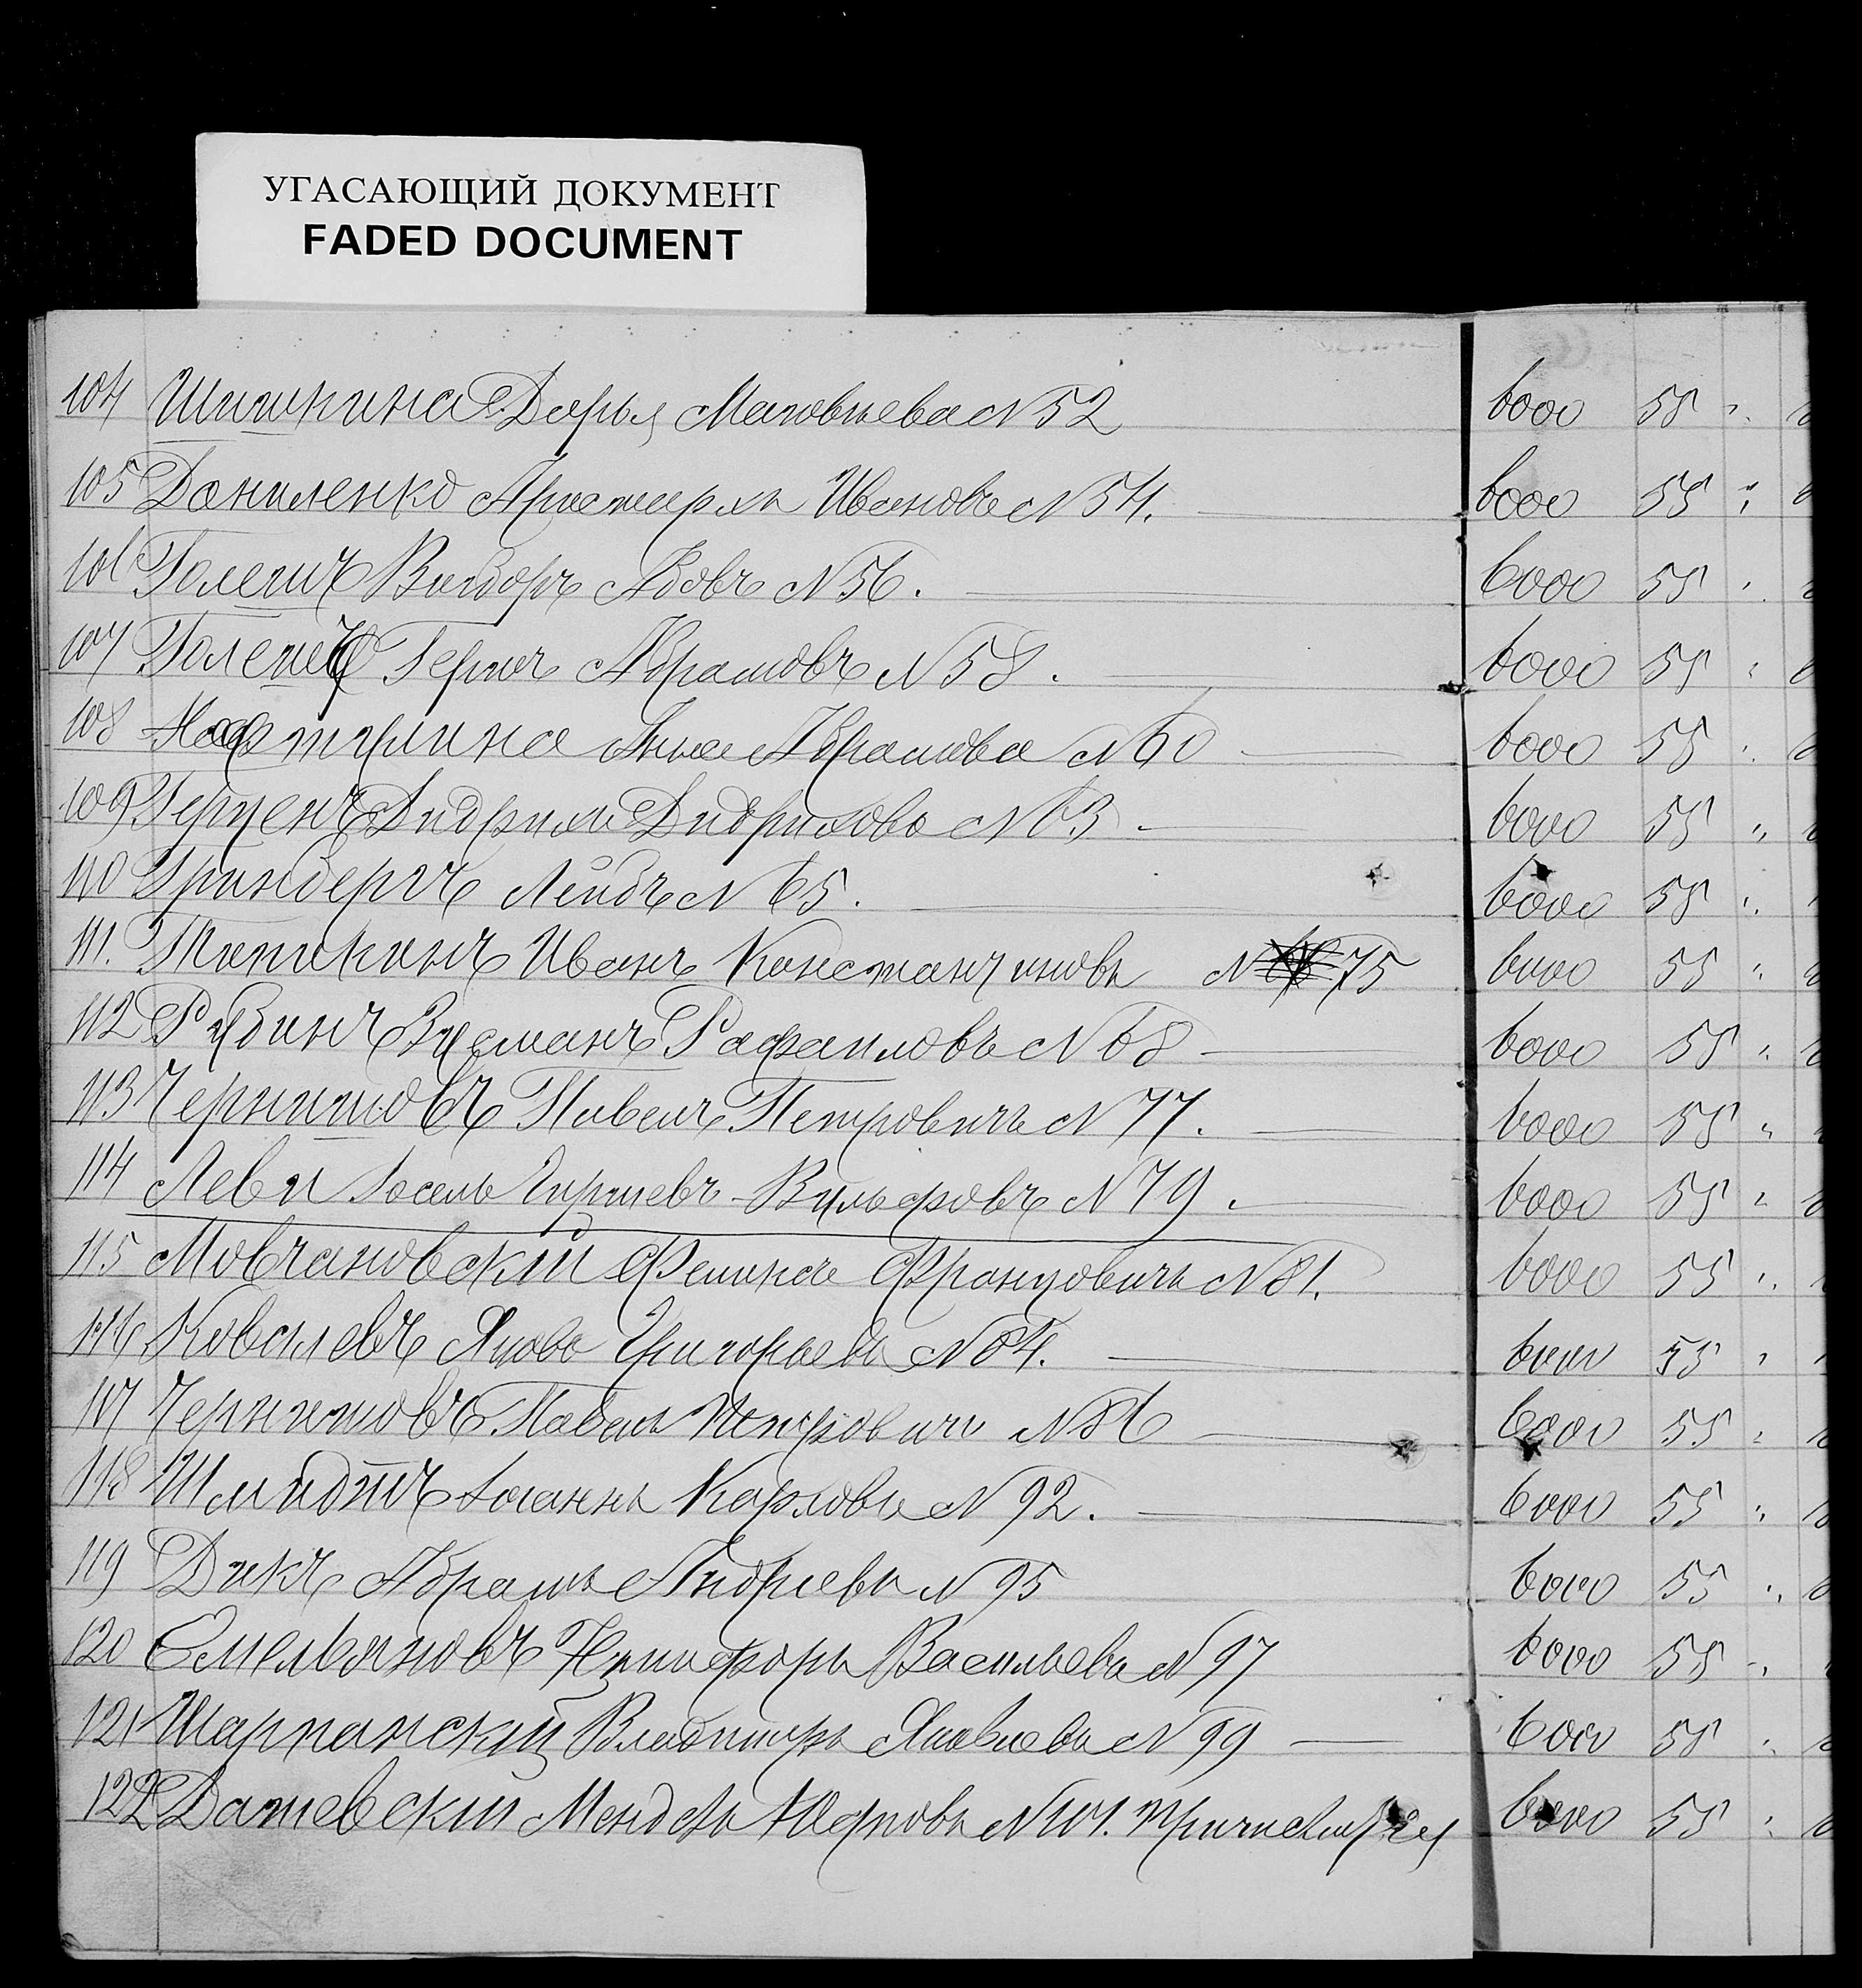 УГАСАЮЩИЙ ДОКУМЕНТ
FADED DOCUMENT
104 Шишкина Дарья Матовѣева N 52 6000 55
105 Даниленко Аристархъ Ивановъ N 54. 6000 55
106 Голешъ Вигдоръ Абовъ N 56. 6000 55
107 Голешъ Гершъ Абрамовъ N 58. 6000 55
108 Нафтулина Анна Абрамова N 60 6000 55
109 Герценъ Дидрихъ Дидриховъ N 63 6000 55
110 Гринбергъ Лейбъ N 65. 6000 55
111. Типикинъ Иванъ Константиновъ N 75 6000 55
112 Рубинъ Зусманъ Рафаиловъ N 68 6000 55
113 Чернышовъ Павелъ Петровичъ N 77. 6000 55
114 Леви Іосель Гиршевъ-Вульфовъ N 79. 6000 55
115 Мовчановскій Феликсъ Францовичъ N 81. 6000 55
116 Ковалевъ Яковъ Григорьевъ N 84. 6000 55
117 Чернышовъ Павелъ Петровичъ N 86 6000 55
118 Шмидтъ Іоганнъ Карловъ N 92. 6000 55
119 Дикъ Абрамъ Андреевъ N 95 6000 55
120 Емельяновъ Никифоръ Васильевъ N 97 6000 55
121 Шарпанскій Владиміръ Яковлевъ N 99 6000 55
122 Дашевскій Мендель N 101. 6000 55